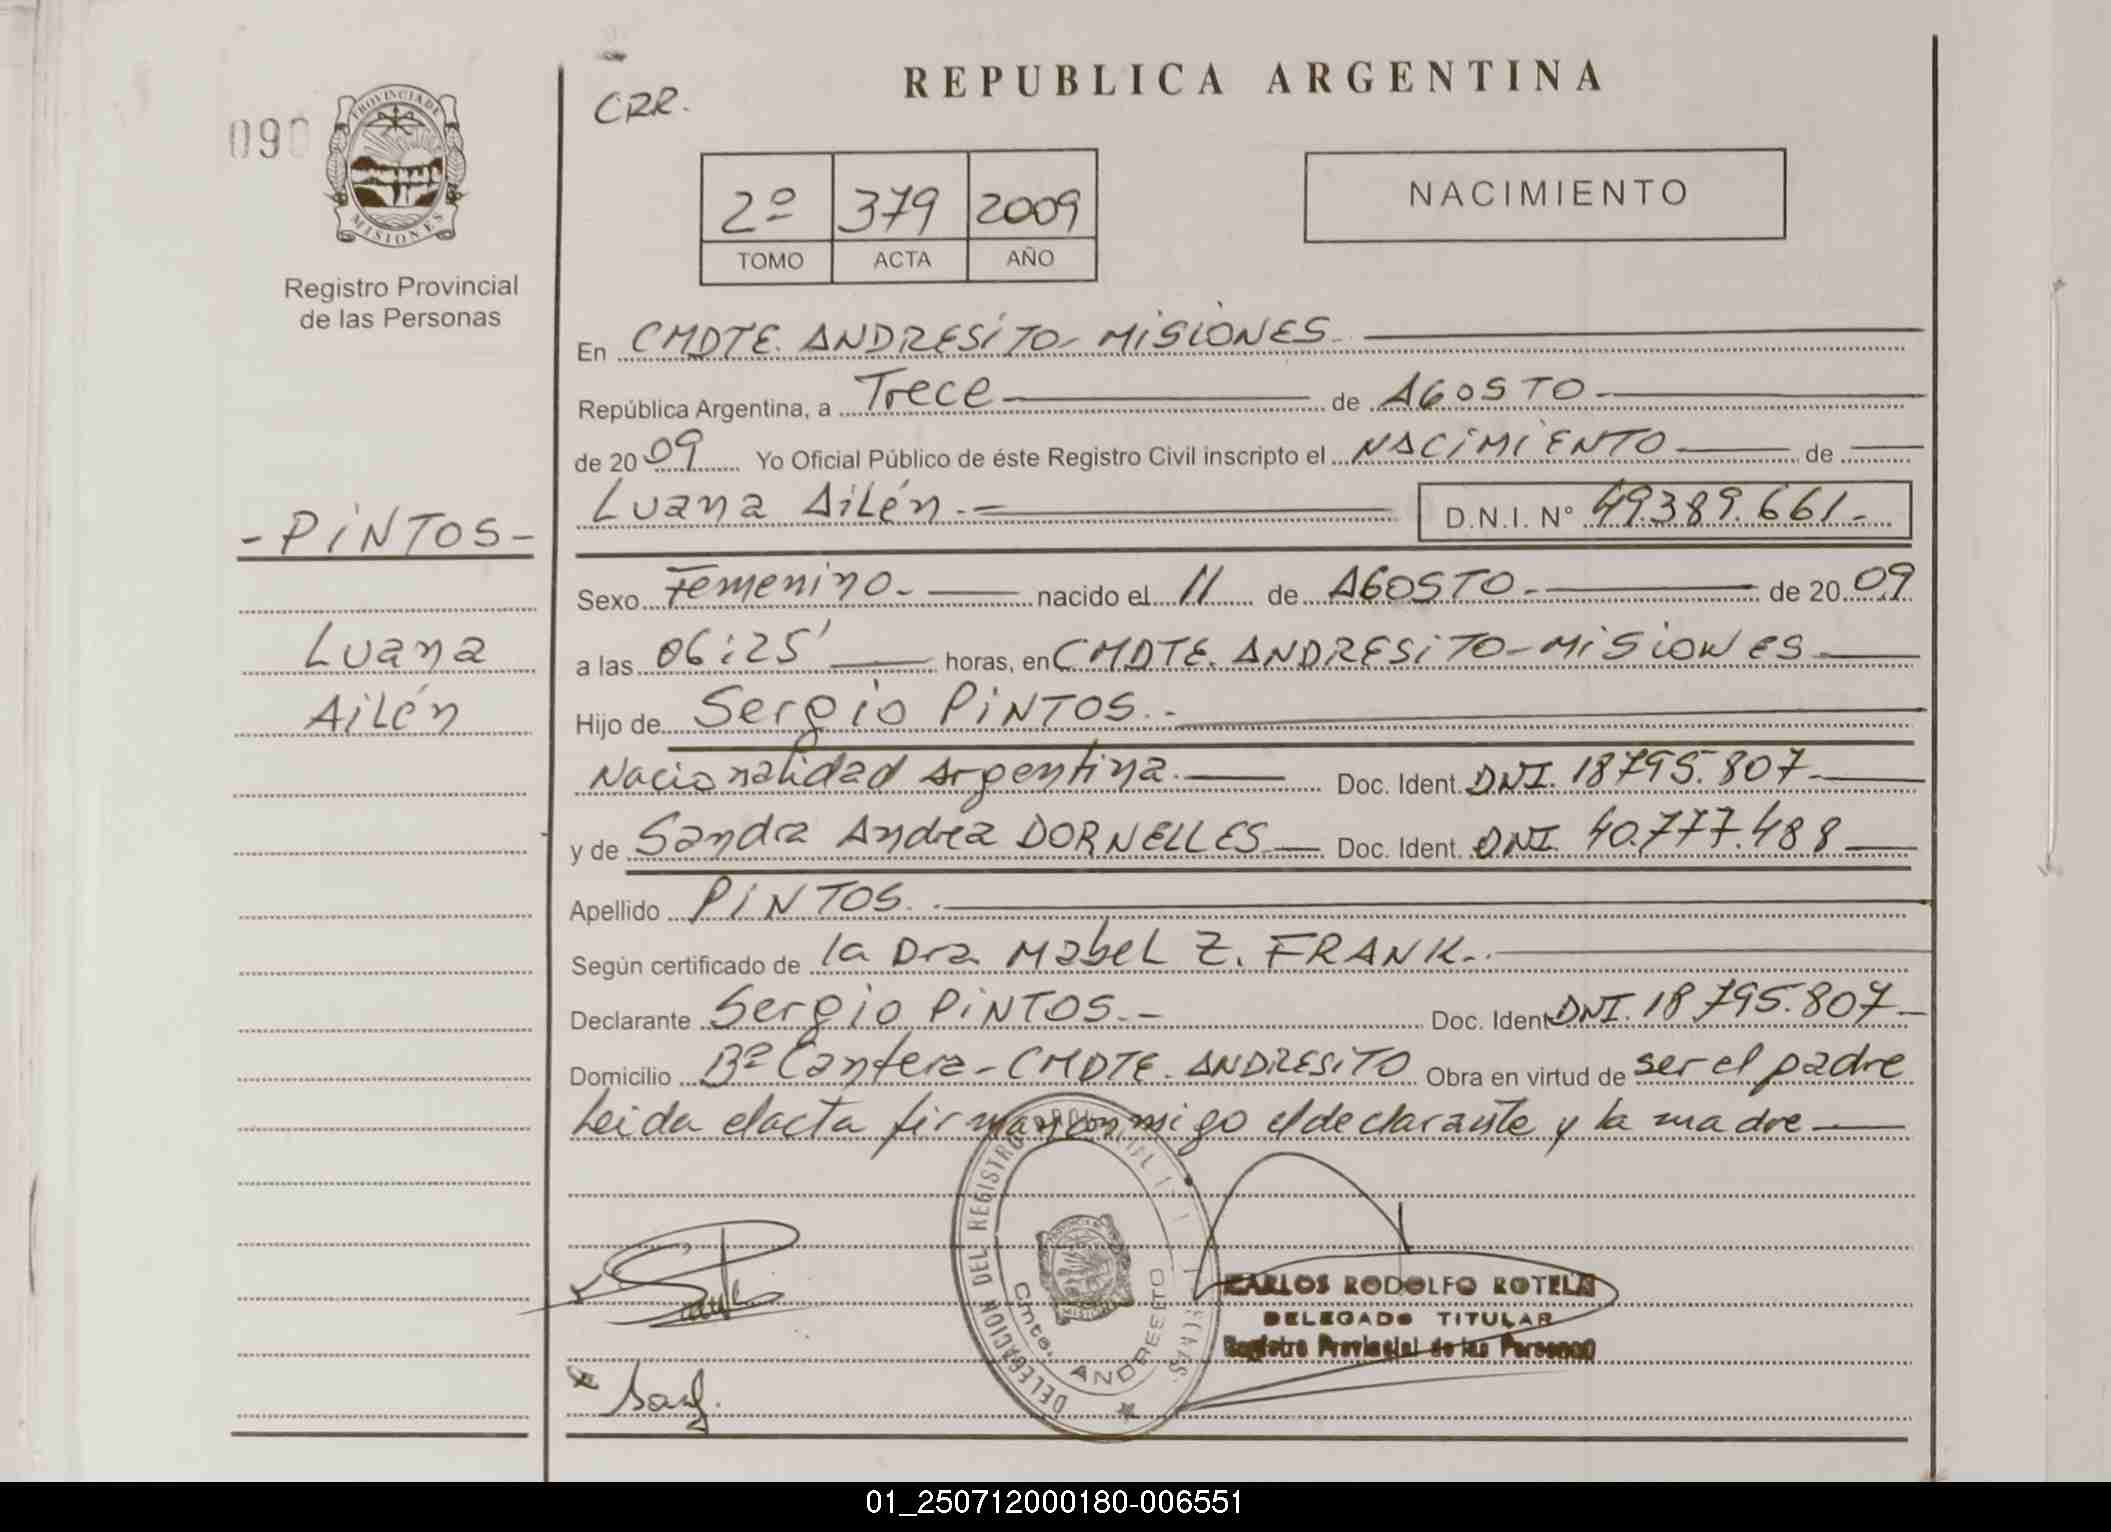 REPUBLICA ARGENTINA
CRR.
090
PROVINCIA DE
MISIONES
Registro Provincial
de las Personas
2º 379 2009
TOMO ACTA AÑO
NACIMIENTO
En CMDTE. ANDRESITO - MISIONES
República Argentina, a Trece de AGOSTO
de 2009 Yo Oficial Público de éste Registro Civil inscripto el NACIMIENTO de
Luana Ailén.- D.N.I. Nº 49.389.661.-
- PINTOS -
Luana
Ailén
Sexo Femenino.- nacido el 11 de AGOSTO.- de 2009
a las 06:25' horas, en CMDTE. ANDRESITO - MISIONES
Hijo de Sergio PINTOS.-
Nacionalidad Argentina.- Doc. Ident. DNI. 18.795.807
y de Sandra Andrea DORNELLES Doc. Ident. DNI. 40.777.488
Apellido PINTOS.
Según certificado de la Dra Mabel Z. FRANK.
Declarante Sergio PINTOS.- Doc. Ident DNI. 18.795.807-
Domicilio Bº Cantera - CMDTE. ANDRESITO Obra en virtud de ser el padre
Leida el acta firman conmigo el declarante y la madre
DELEGACION DEL REGISTRO
Cmte. ANDRESITO
CARLOS RODOLFO ROTELA
DELEGADO TITULAR
Registro Provincial de las Personas
01_250712000180-006551